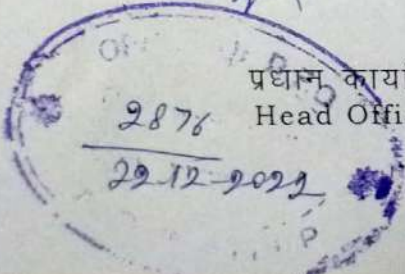 प्रधान काया
Head Offi
2876
22-12-2022
P